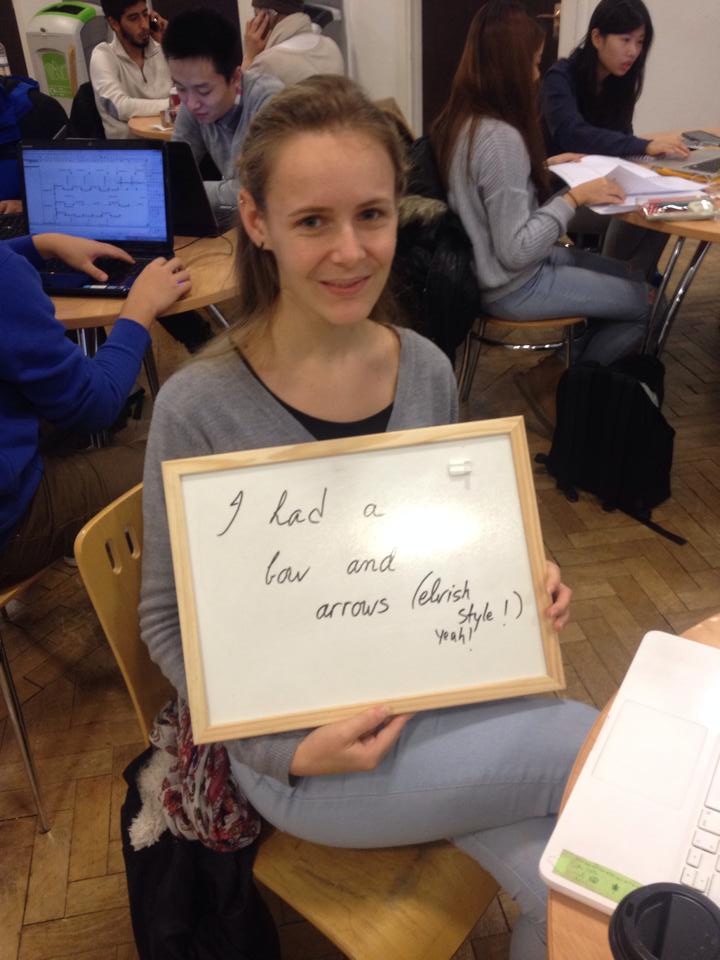 I had a
bow and
arrows (elvish
style!)
Yeah!